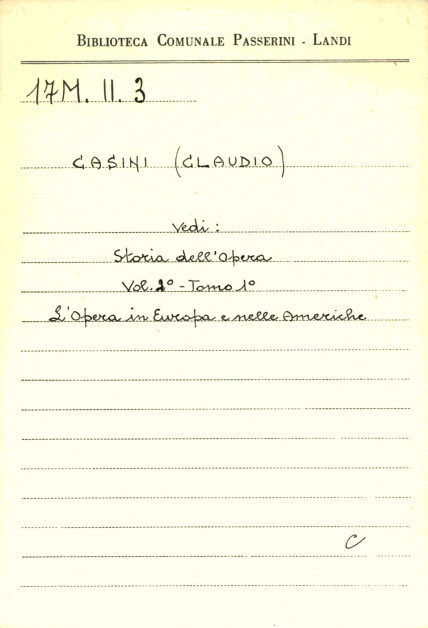 BIBLIOTECA COMUNALE PASSERINI - LANDI
17M. II. 3
CASINI (CLAUDIO)
Vedi:
Storia dell'Opera
Vol. 2° - Tomo 1°
L'Opera in Europa e nelle Americhe
C